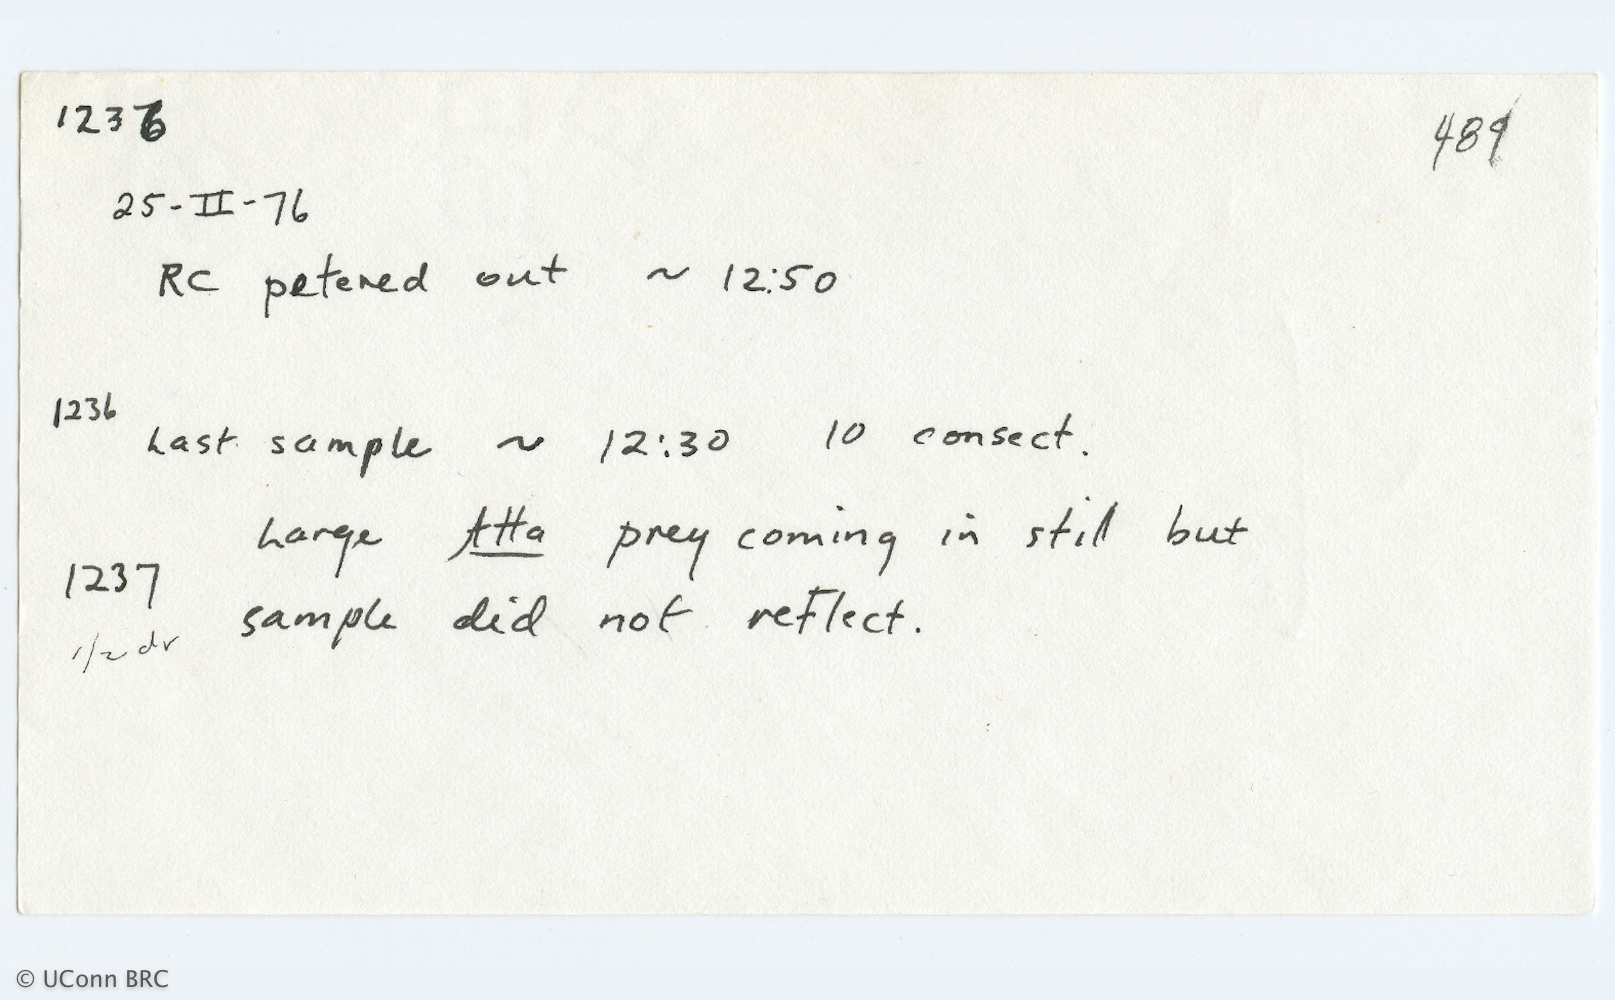 1236
489
25-II-76
RC petered out ~ 12:50
1236
Last sample ~ 12:30 10 consect.
Large Atta prey coming in still but
1237
sample did not reflect.
1/2 dr
© UConn BRC